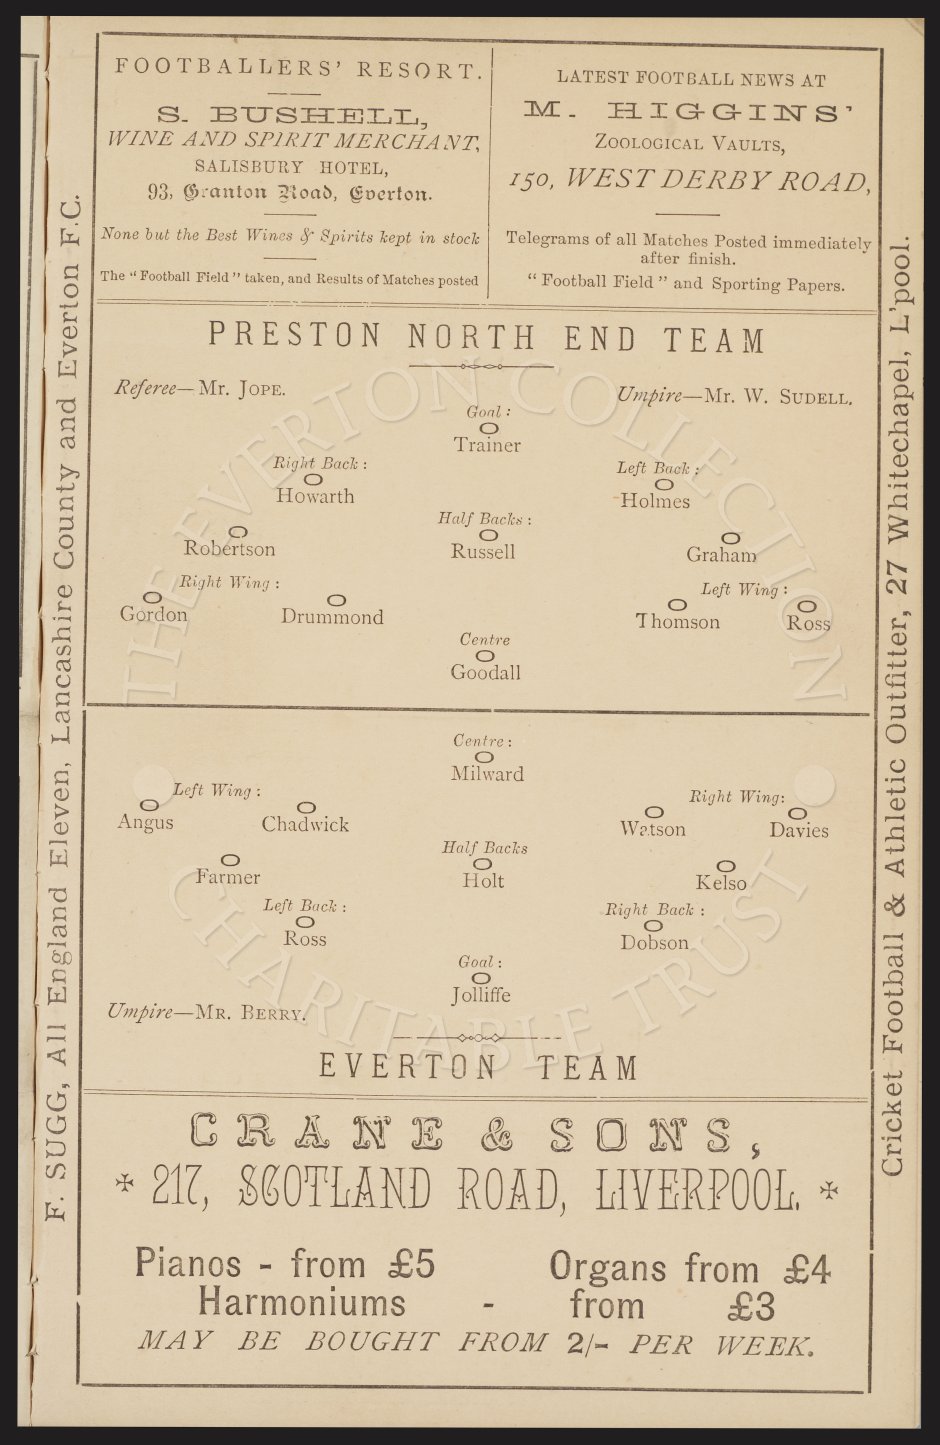 FOOTBALLERS' RESORT.
S. BUSHELL,
WINE AND SPIRIT MERCHANT,
SALISBURY HOTEL,
93, Granton Road, Everton.
None but the Best Wines & Spirits kept in stock
The "Football Field" taken, and Results of Matches posted
LATEST FOOTBALL NEWS AT
M. HIGGINS'
ZOOLOGICAL VAULTS,
150, WEST DERBY ROAD,
Telegrams of all Matches Posted immediately
after finish.
"Football Field" and Sporting Papers.
PRESTON NORTH END TEAM
Referee—MR. JOPE.
Umpire—MR. W. SUDELL.
Goal:
Trainer
Right Back:
Howarth
Left Back:
Holmes
Half Backs:
Robertson
Russell
Graham
Right Wing:
Left Wing:
Gordon
Drummond
Thomson
Ross
Centre
Goodall
Centre:
Milward
Left Wing:
Right Wing:
Angus
Chadwick
Watson
Davies
Half Backs
Farmer
Holt
Kelso
Left Back:
Right Back:
Ross
Dobson
Goal:
Jolliffe
Umpire—MR. BERRY.
EVERTON TEAM
CRANE & SONS,
217, SCOTLAND ROAD, LIVERPOOL.
Pianos - from £5 Organs from £4
Harmoniums - from £3
MAY BE BOUGHT FROM 2/- PER WEEK.
F. SUGG, All England Eleven, Lancashire County and Everton F.C.
Cricket Football & Athletic Outfitter, 27 Whitechapel, L'pool.
THE EVERTON COLLECTION
CHARITABLE TRUST